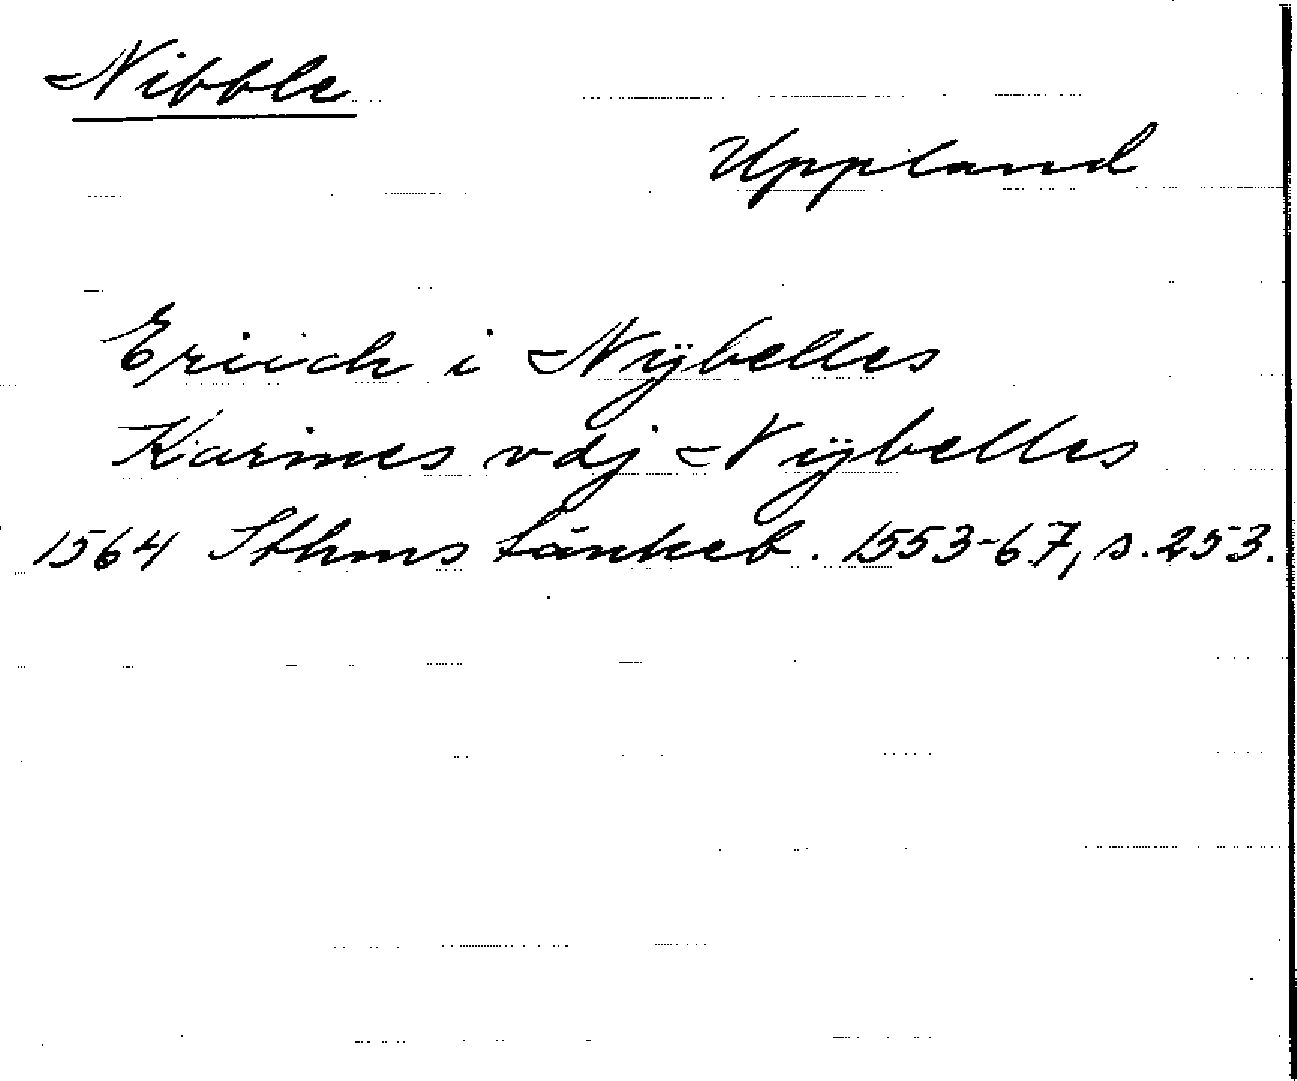 Nibble
Uppland
Erich i Nÿbelles
Karines vdj Nÿbelles
1564 Sthms tänkeb. 1553-67, s. 253.